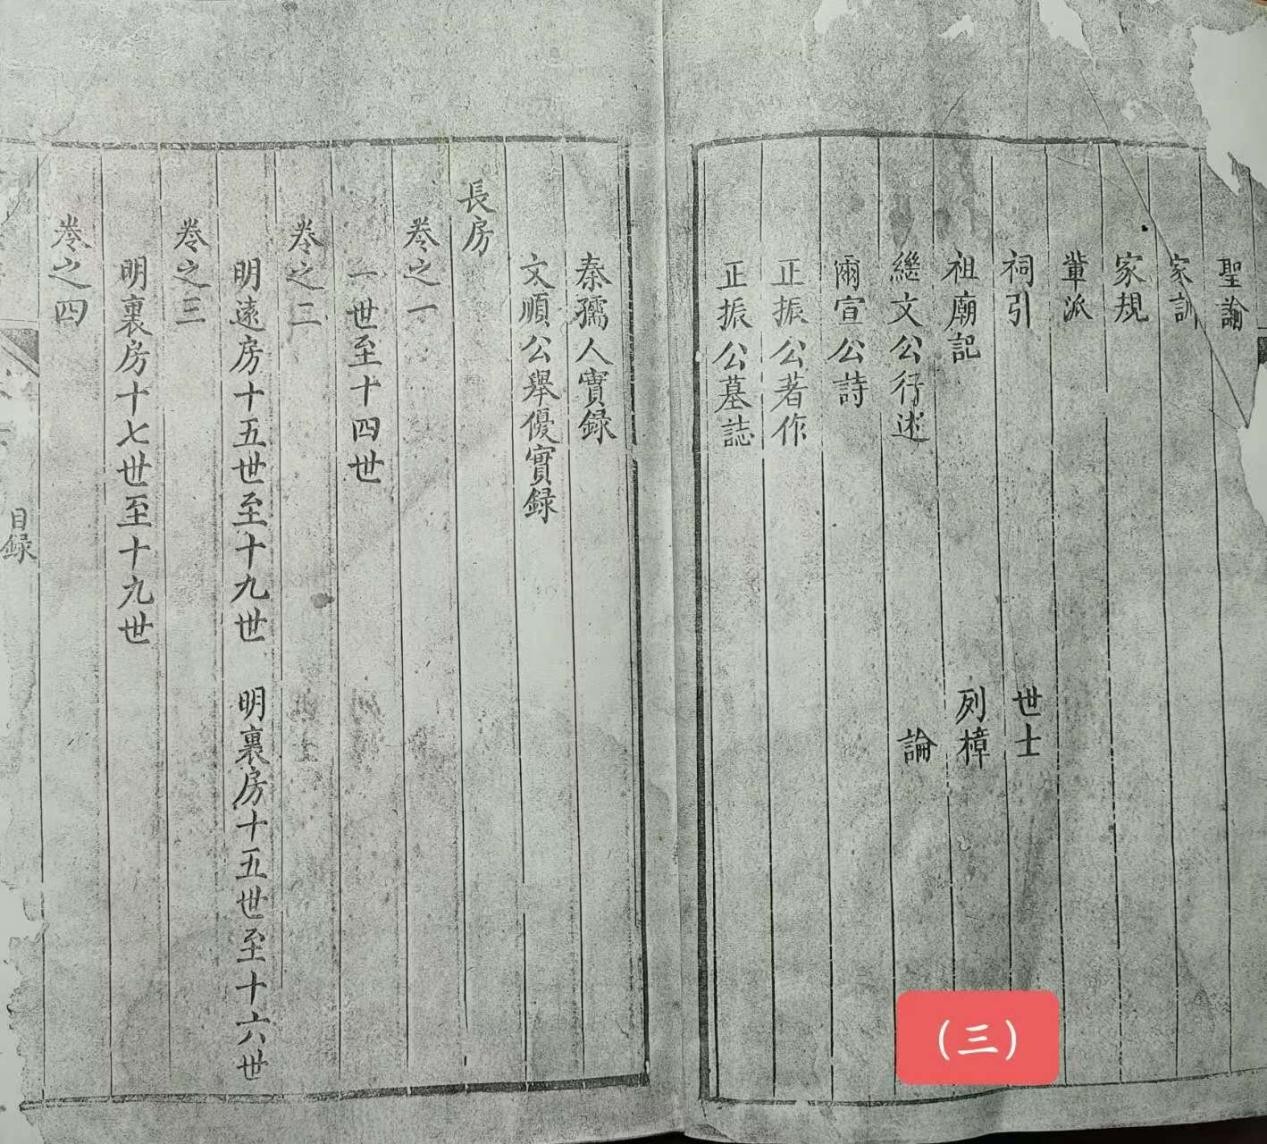 聖諭
家訓
家規
輩派
祠引 世士
祖廟記 列樟
繼文公行述 論
爾宣公詩
正振公著作
正振公墓誌
秦孺人實録
文順公舉優實録
長房
卷之一
一世至十四世
卷之二
明遠房十五世至十九世 明裏房十五世至十六世
卷之三
明裏房十七世至十九世
卷之四
目録
(三)